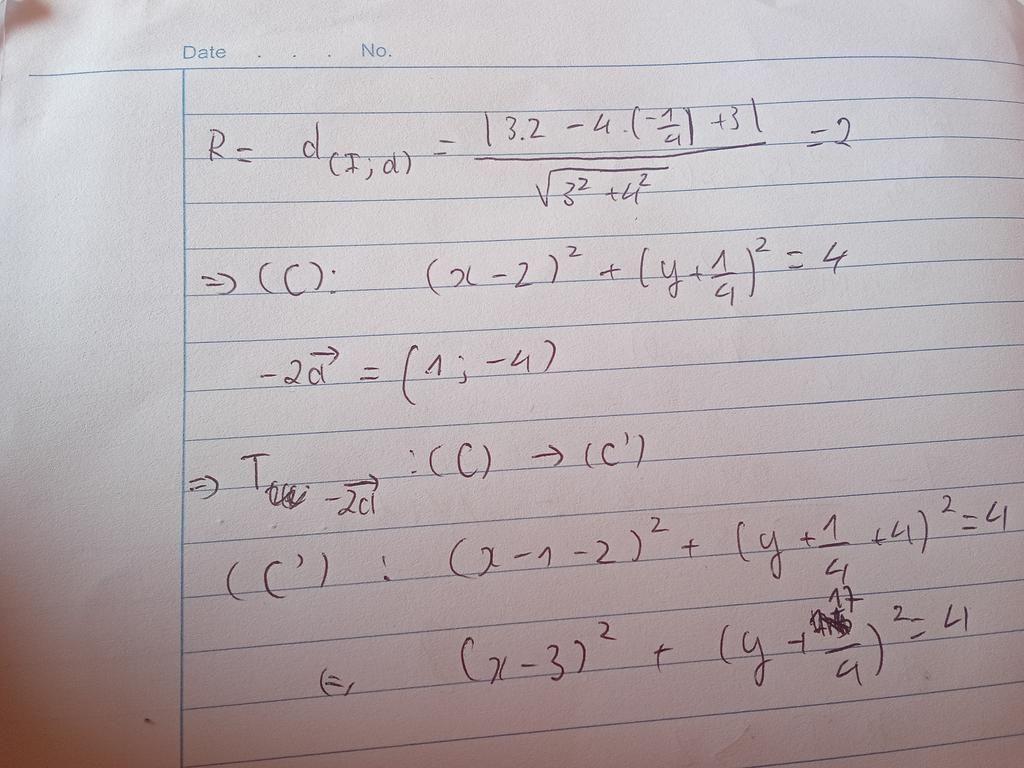 Date . . . No.
R = d(I; d) = |3.2 - 4.(-1/4) + 3| / √(3² + 4²) = 2
=> (C): (x - 2)² + (y + 1/4)² = 4
-2a⃗ = (1; -4)
=> T -2a⃗ : (C) → (C')
(C') : (x - 1 - 2)² + (y + 1/4 + 4)² = 4
(=, (x - 3)² + (y + 17/4)² = 4